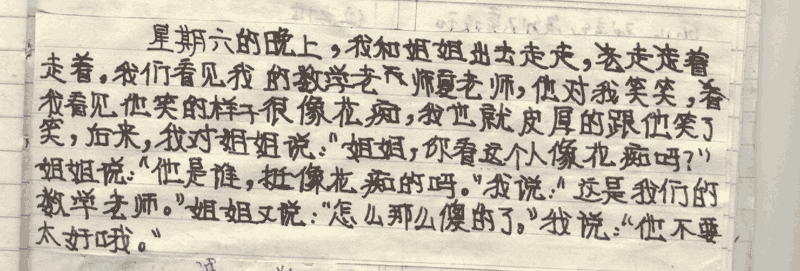 星期六的晚上，我和姐姐出去走走，走走走着
走着，我们看见我的数学老师夏老师，他对我笑笑，看
我看见他笑的样子很像花痴，我也就皮厚的跟他笑了
笑，后来，我对姐姐说：“姐姐，你看这个人像花痴吗？”
姐姐说：“他是谁，挺像花痴的吗。”我说：“这是我们的
数学老师。”姐姐又说：“怎么那么傻的了。”我说：“他不要
太好哦。”